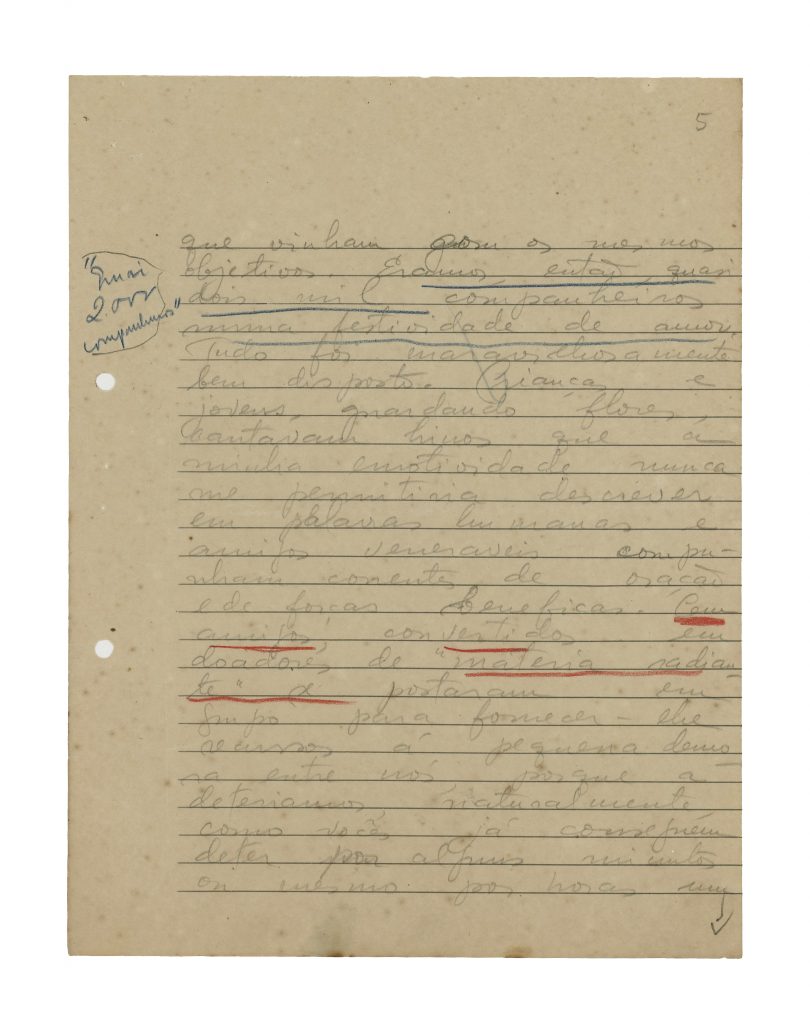 5
que vinham com os mesmos
objetivos Eramos, então, quasi
dois mil companheiros
numa festividade de amor.
"Quasi
2.000
companheiros"
Tudo foi maravilhosamente
bem disposto. Crianças e
jovens, guardando flores,
cantavam hinos que a
minha emotividade nunca
me permitiria descrever
em palavras humanas e
amigos veneraveis compu-
nham correntes de oração
e de forças beneficas. Cem
amigos, convertidos em
doadores de "materia radian-
te" se postaram em
grupo para fornecer-lhe
recursos á pequena demo
ra entre nós porque a
deteriamos, naturalmente
como vocês já conseguem
deter por alguns minutos
ou mesmo por horas um